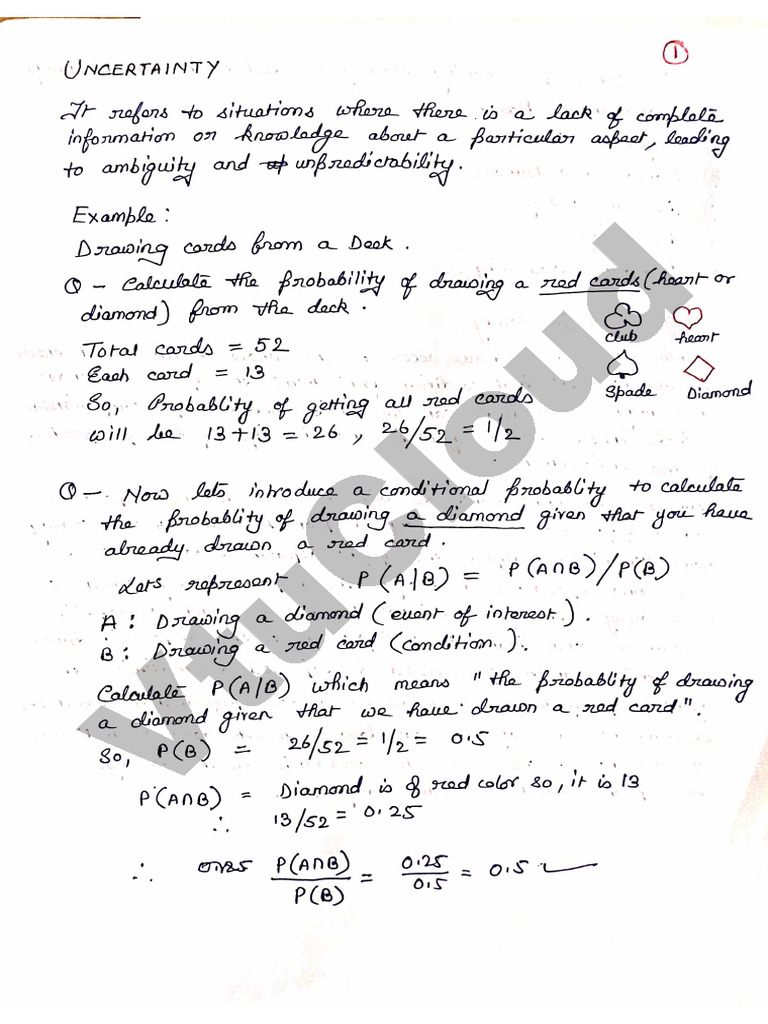 1
UNCERTAINTY
It refers to situations where there is a lack of complete
information or knowledge about a particular aspect, leading
to ambiguity and unpredictability.
Example:
Drawing cards from a Deck.
Q - Calculate the probability of drawing a red cards (heart or
diamond) from the deck.
club heart
Total cards = 52
Each card = 13
Spade Diamond
So, Probablity of getting all red cards
will be 13+13 = 26, 26/52 = 1/2
Q - Now lets introduce a conditional probablity to calculate
the probablity of drawing a diamond given that you have
already drawn a red card.
Lets represent P(A|B) = P(A∩B)/P(B)
A: Drawing a diamond (event of interest).
B: Drawing a red card (condition).
Calculate P(A/B) which means "the probablity of drawing
a diamond given that we have drawn a red card".
So, P(B) = 26/52 = 1/2 = 0.5
P(A∩B) = Diamond is of red color so, it is 13
∴ 13/52 = 0.25
∴ P(A∩B)/P(B) = 0.25/0.5 = 0.5
VtuCloud